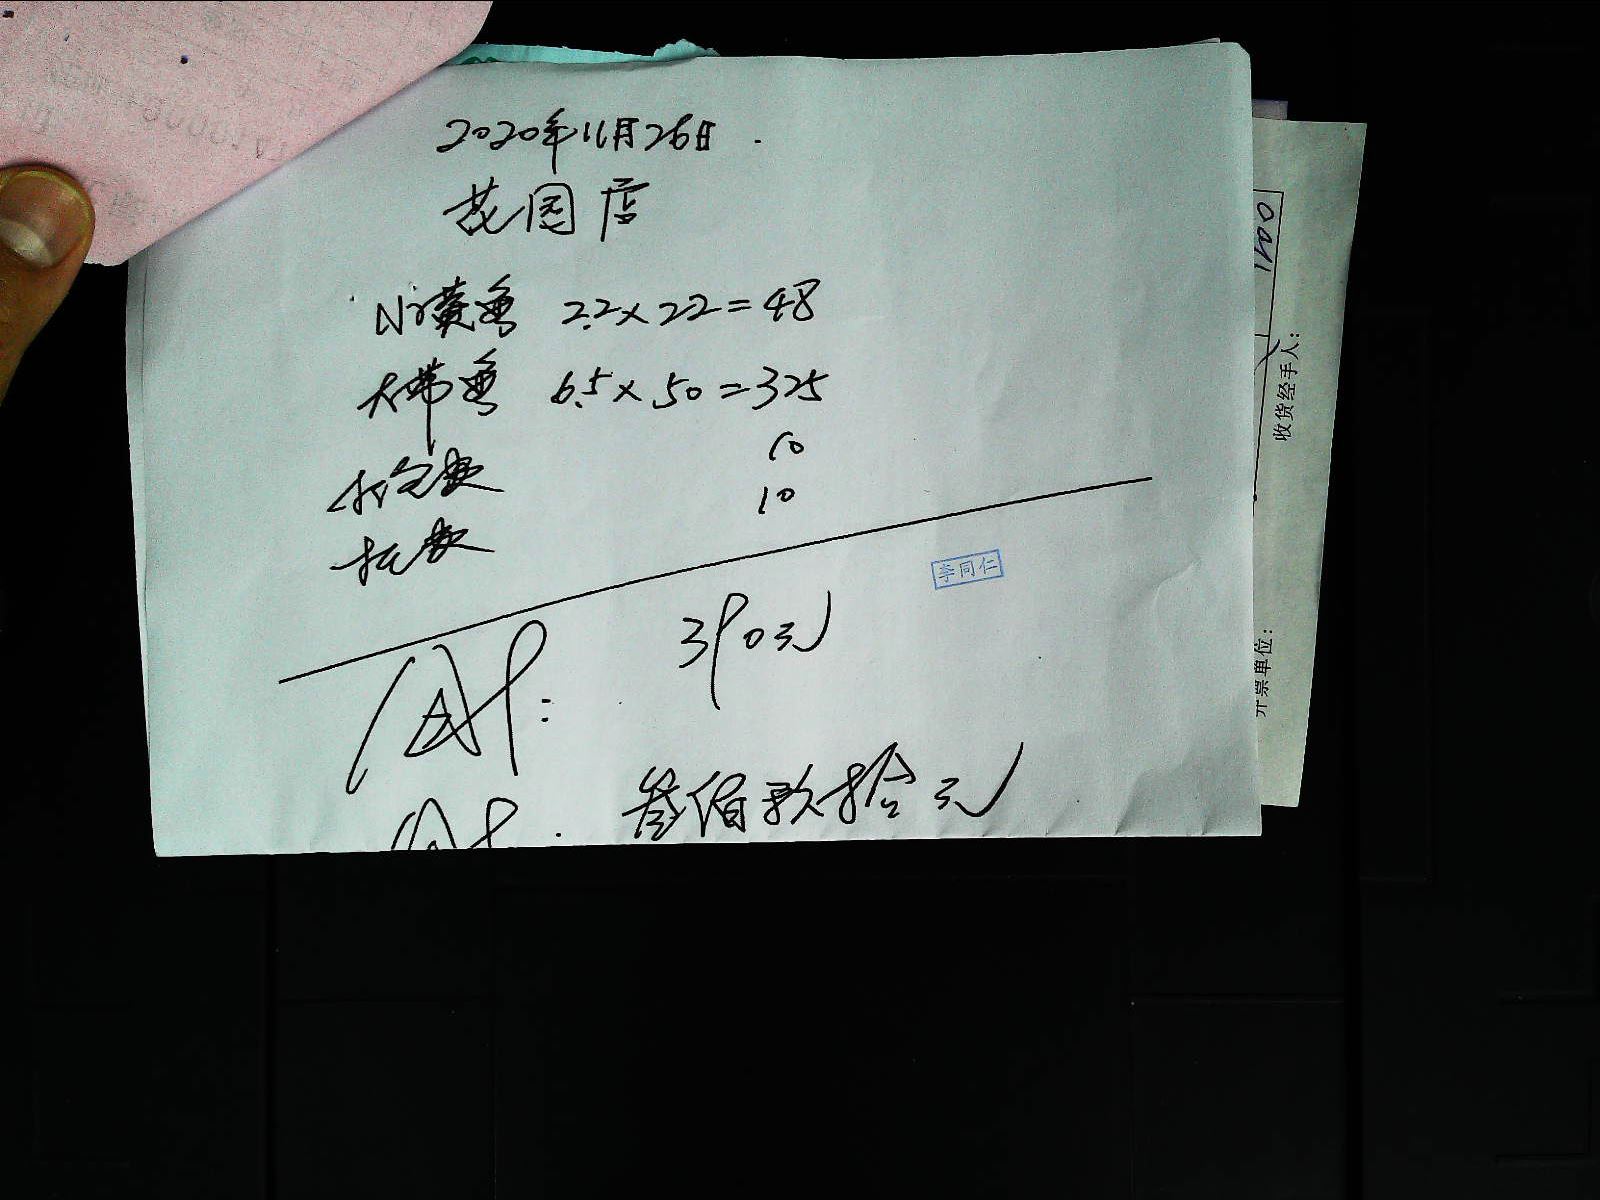 2020年11月26日.
花园店
小黄鱼 2.2×22=48
大带鱼 6.5×50=325
打包费 10
托费 10
合计: 390元
叁佰玖拾元
李同仁
收货经手人:
开票单位: